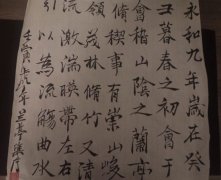 永和九年歲在癸
丑暮春之初會于
會稽山陰之蘭亭
脩稧事有崇山峻
領茂林脩竹又清
流激湍暎帶左右
引以為流觴曲水
壬寅虎年